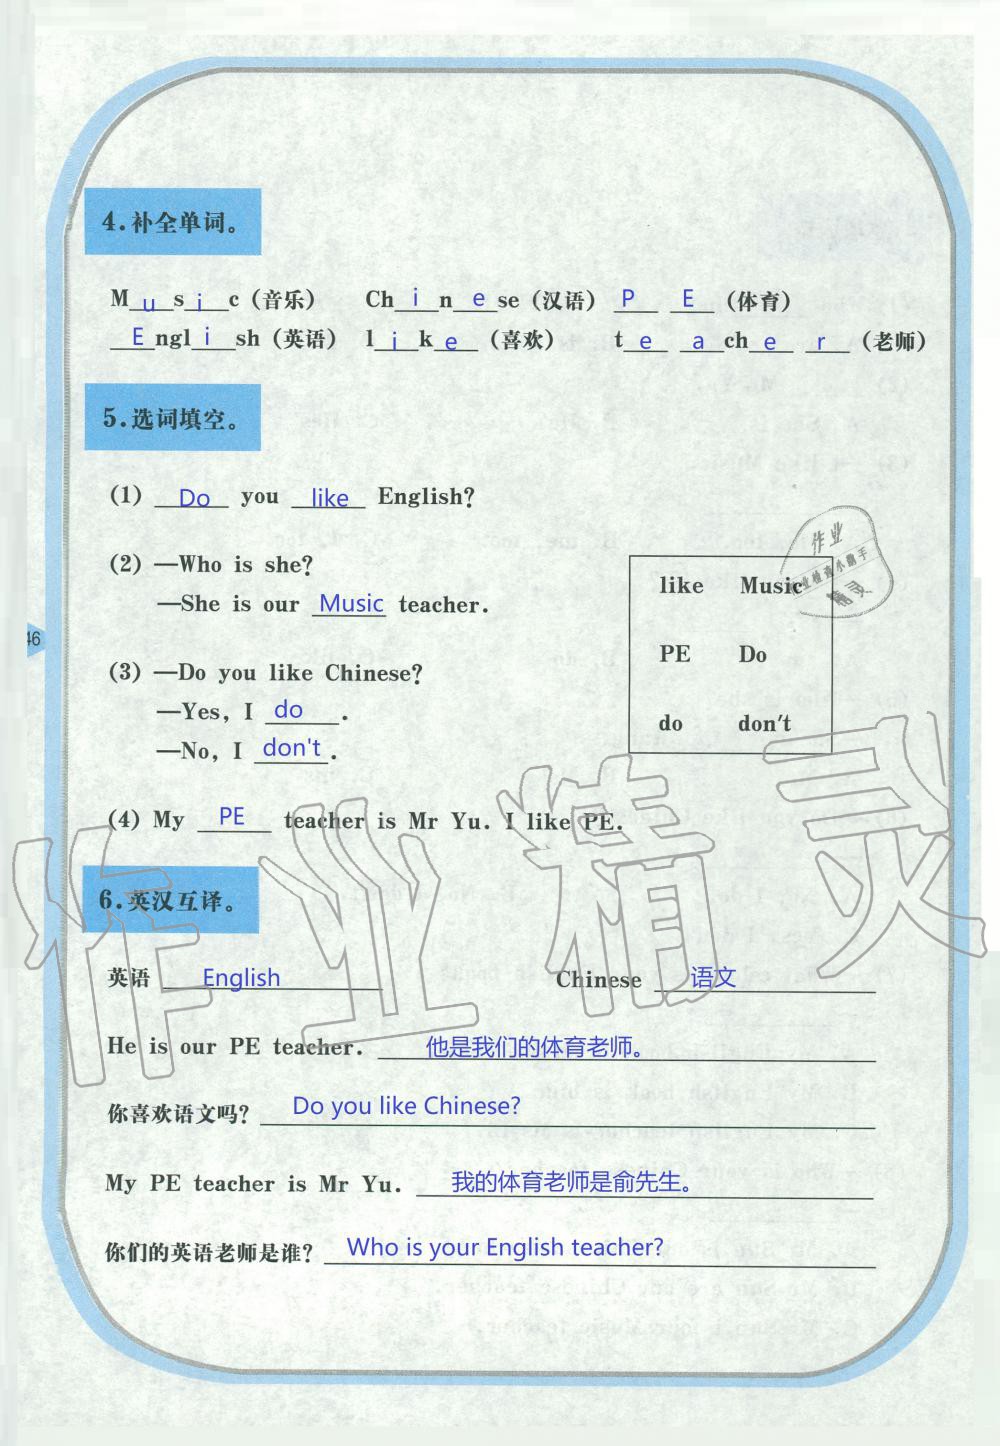 4.补全单词。
M u s i c（音乐） Ch i n e se（汉语） P E（体育）
E ngl i sh（英语） l i k e（喜欢） t e a ch e r（老师）
5.选词填空。
(1) Do you like English?
(2) —Who is she?
—She is our Music teacher.
(3) —Do you like Chinese?
—Yes, I do.
—No, I don't.
(4) My PE teacher is Mr Yu. I like PE.
like Music
PE Do
do don't
46
6.英汉互译。
英语 English Chinese 语文
He is our PE teacher. 他是我们的体育老师。
你喜欢语文吗? Do you like Chinese?
My PE teacher is Mr Yu. 我的体育老师是俞先生。
你们的英语老师是谁? Who is your English teacher?
作业精灵
作业
作业检查小助手
精灵